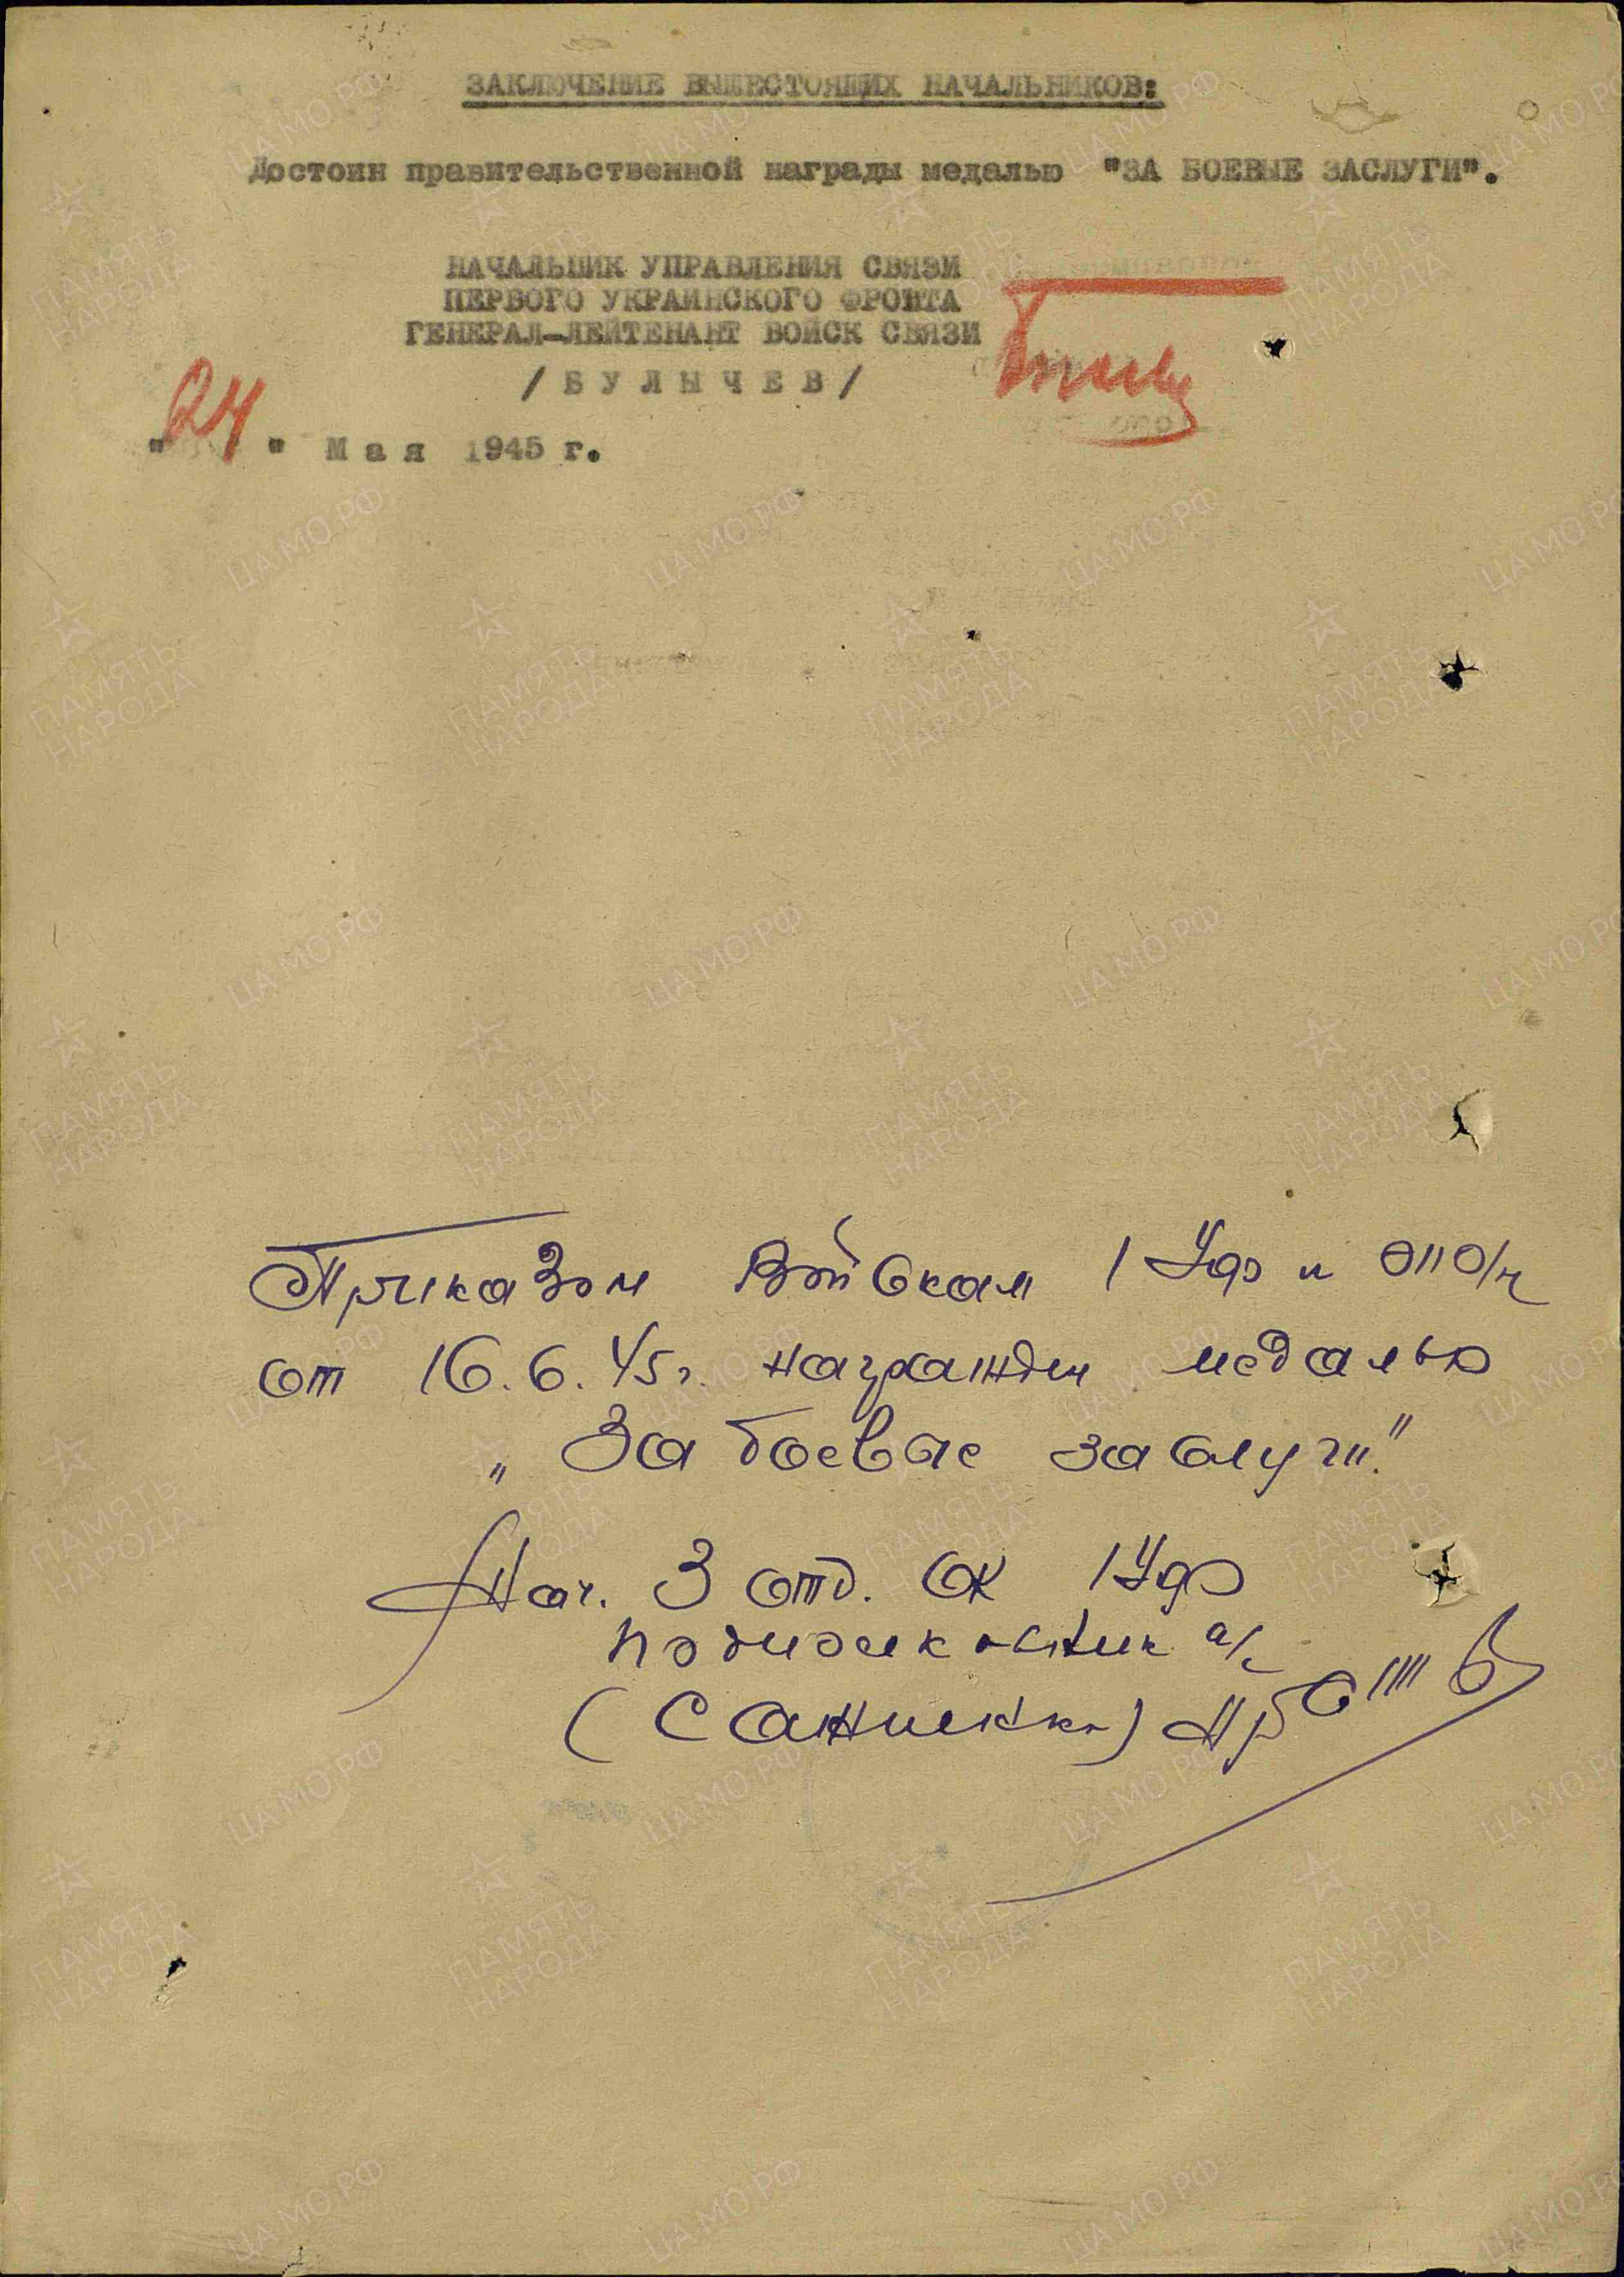 ЗАКЛЮЧЕНИЕ ВЫШЕСТОЯЩИХ НАЧАЛЬНИКОВ:
Достоин правительственной награды медалью "ЗА БОЕВЫЕ ЗАСЛУГИ".
НАЧАЛЬНИК УПРАВЛЕНИЯ СВЯЗИ
ПЕРВОГО УКРАИНСКОГО ФРОНТА
ГЕНЕРАЛ-ЛЕЙТЕНАНТ ВОЙСК СВЯЗИ
/БУЛЫЧЕВ/
"24" Мая 1945 г.
Приказом Войскам 1 Укр
от 16.6.45г. награжден медалью
„За боевые заслуги"
Нач. 3 отд. ОК 1Укр
подполковник а/с
ПАМЯТЬ НАРОДА
ЦА МО РФ